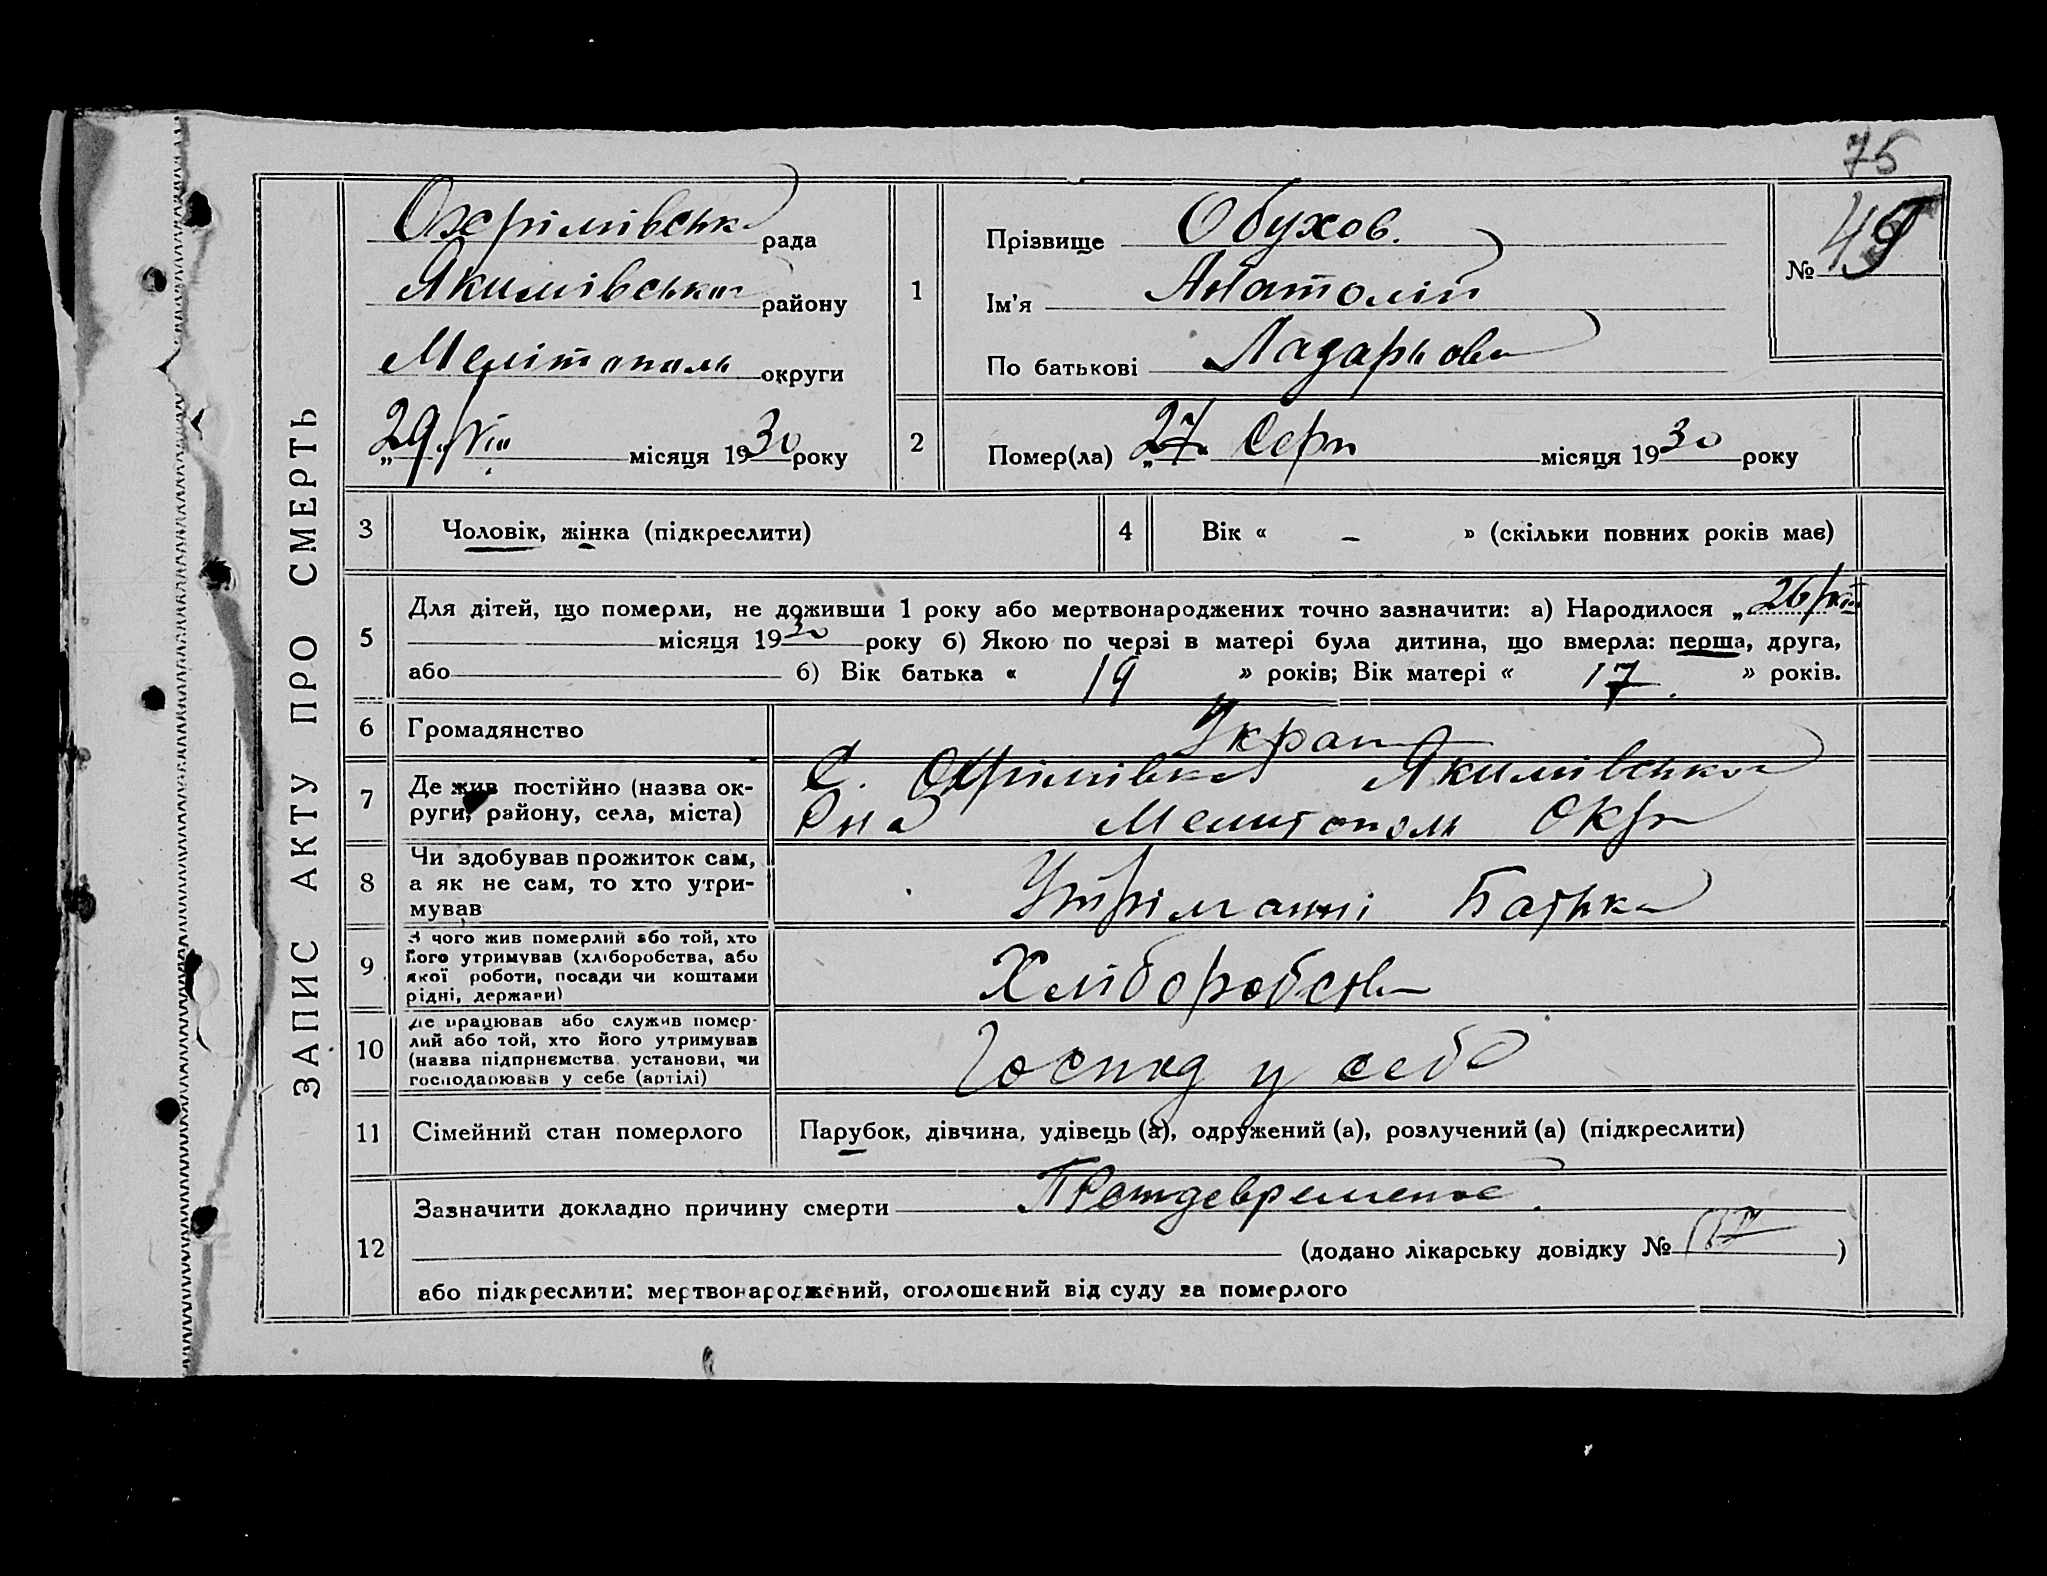 75
ЗАПИС АКТУ ПРО СМЕРТЬ
Охрімівська рада
Якимівського району
Мелітополь округи
„29/VIII місяця 1930 року
1
Прізвище Обухов.
Ім'я Анатолій
По батькові Лазарьови
№ 49
2
Помер(ла) „27 Серп місяця 1930 року
3 Чоловік, жінка (підкреслити)
4 Вік « – » (скільки повних років має)
5
Для дітей, що померли, не доживши 1 року або мертвонароджених точно зазначити: а) Народилося „26/VIII
місяця 1930 року б) Якою по черзі в матері була дитина, що вмерла: перша, друга,
або б) Вік батька « 19 » років; Вік матері « 17 » років.
6 Громадянство Украп
7
Де жив постійно (назва ок-
руги, району, села, міста)
С. Охрімівка Якимівського
Рна Мелитополь Окр
8
Чи здобував прожиток сам,
а як не сам, то хто утри-
мував
Утріманні Батька
9
З чого жив померлий або той, хто
його утримував (хліборобства, або
якої роботи, посади чи коштами
рідні, держави)
Хліборобств
10
Де працював або служив помер-
лий або той, хто його утримував
(назва підприємства, установи, чи
господарював у себе (артілі)
Господ у себе
11 Сімейний стан померлого Парубок, дівчина, удівець (а), одружений (а), розлучений (а) (підкреслити)
12
Зазначити докладно причину смерти
(додано лікарську довідку № )
або підкреслити: мертвонароджений, оголошений від суду за померлого